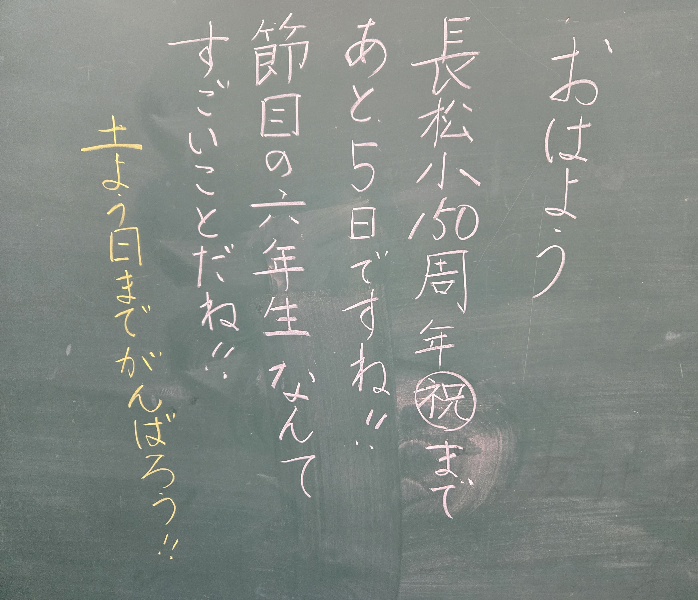 おはよう
長松小150周年㊗まで
あと5日ですね!!
節目の六年生なんて
すごいことだね!!
土よう日までがんばろう!!